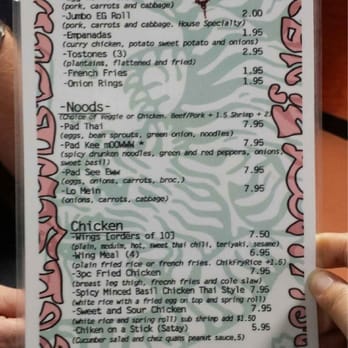 (pork, carrots and cabbage)
-Jumbo EG Roll 2.00
(pork, carrots and cabbage. House Specialty)
-Empanadas 1.95
(curry chicken, potato sweet potato and onions)
-Tostones (3) 2.95
(plantains, flattened and fried)
-French Fries 1.95
-Onion Rings 1.95
-Noods-
(Choice of veggie or Chicken. Beef/Pork + 1.5 Shrimp + 2)
-Pad Thai 7.95
(eggs, bean sprouts, green onion, noodles)
-Pad Kee mOOWWW * 7.95
(spicy drunken noodles, green and red peppers, onions, sweet basil)
-Pad See Eww 7.95
(eggs, onions, carrots, broc,)
-Lo Mein 7.95
(onions, carrots, cabbage)
Chicken
-Wings [orders of 10] 7.50
(plain, meduim, hot, sweet thai chili, teriyaki, sesame)
-Wing Meal (4) 6.95
(plain fried rice or french fries. ChikFryRice +1.5)
-3pc Fried Chicken 7.95
(breast leg thigh, frecnh fries and cole slaw)
-Spicy Minced Basil Chicken Thai Style 7.95
(white rice with a fried egg on top and spring roll)
-Sweet and Sour Chicken 7.95
(white rice and spring roll) sub shrimp add $1.50
-Chiken on a Stick (Satay) 5.95
(Cucumber salad and chez quams peanut sauce,5)